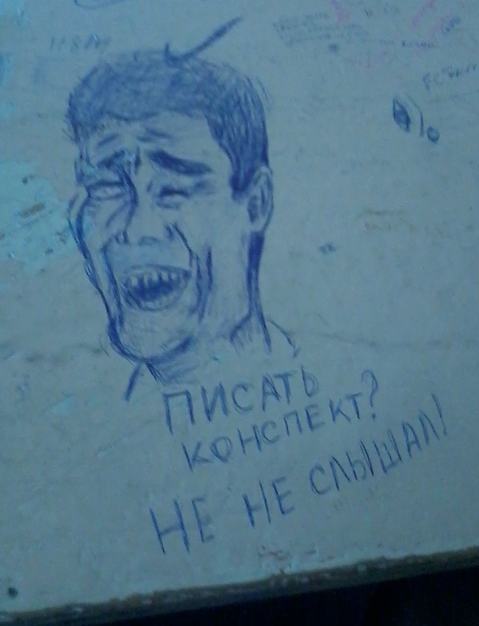 ПИСАТЬ
КОНСПЕКТ?
НЕ НЕ СЛЫШАЛ!